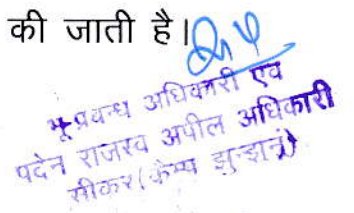 की जाती है।
भू-प्रबन्ध अधिकारी एवं
पदेन राजस्व अपील अधिकारी
सीकर (कैम्प झुन्झुनूं)